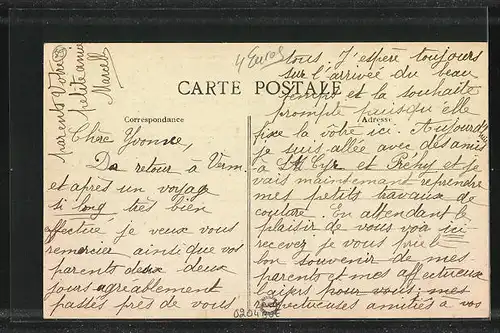 4 Euros
CARTE POSTALE
Correspondance
Adresse
Chère Yvonne,
De retour à Verm.
et après un voyage
si long très bien
effectué je veux vous
remercier ainsi que vos
parents deux deux
jours agréablement
passés près de vous
tous. J'espère toujours
sur l'arrivée du beau
temps et la souhaite
prompte puisqu'elle
fixe la vôtre ici. Aujourd'hui
je suis allée avec des amis
à St Cyr et Préhy et je
vais maintenant reprendre
mes petits travaux de
couture. En attendant le
plaisir de vous voir ici
recevez je vous prie le
bon souvenir de mes
parents et mes affectueux
baisers pour vous; mes
respectueuses amitiés à vos
parents Votre
petite amie
Marcelle